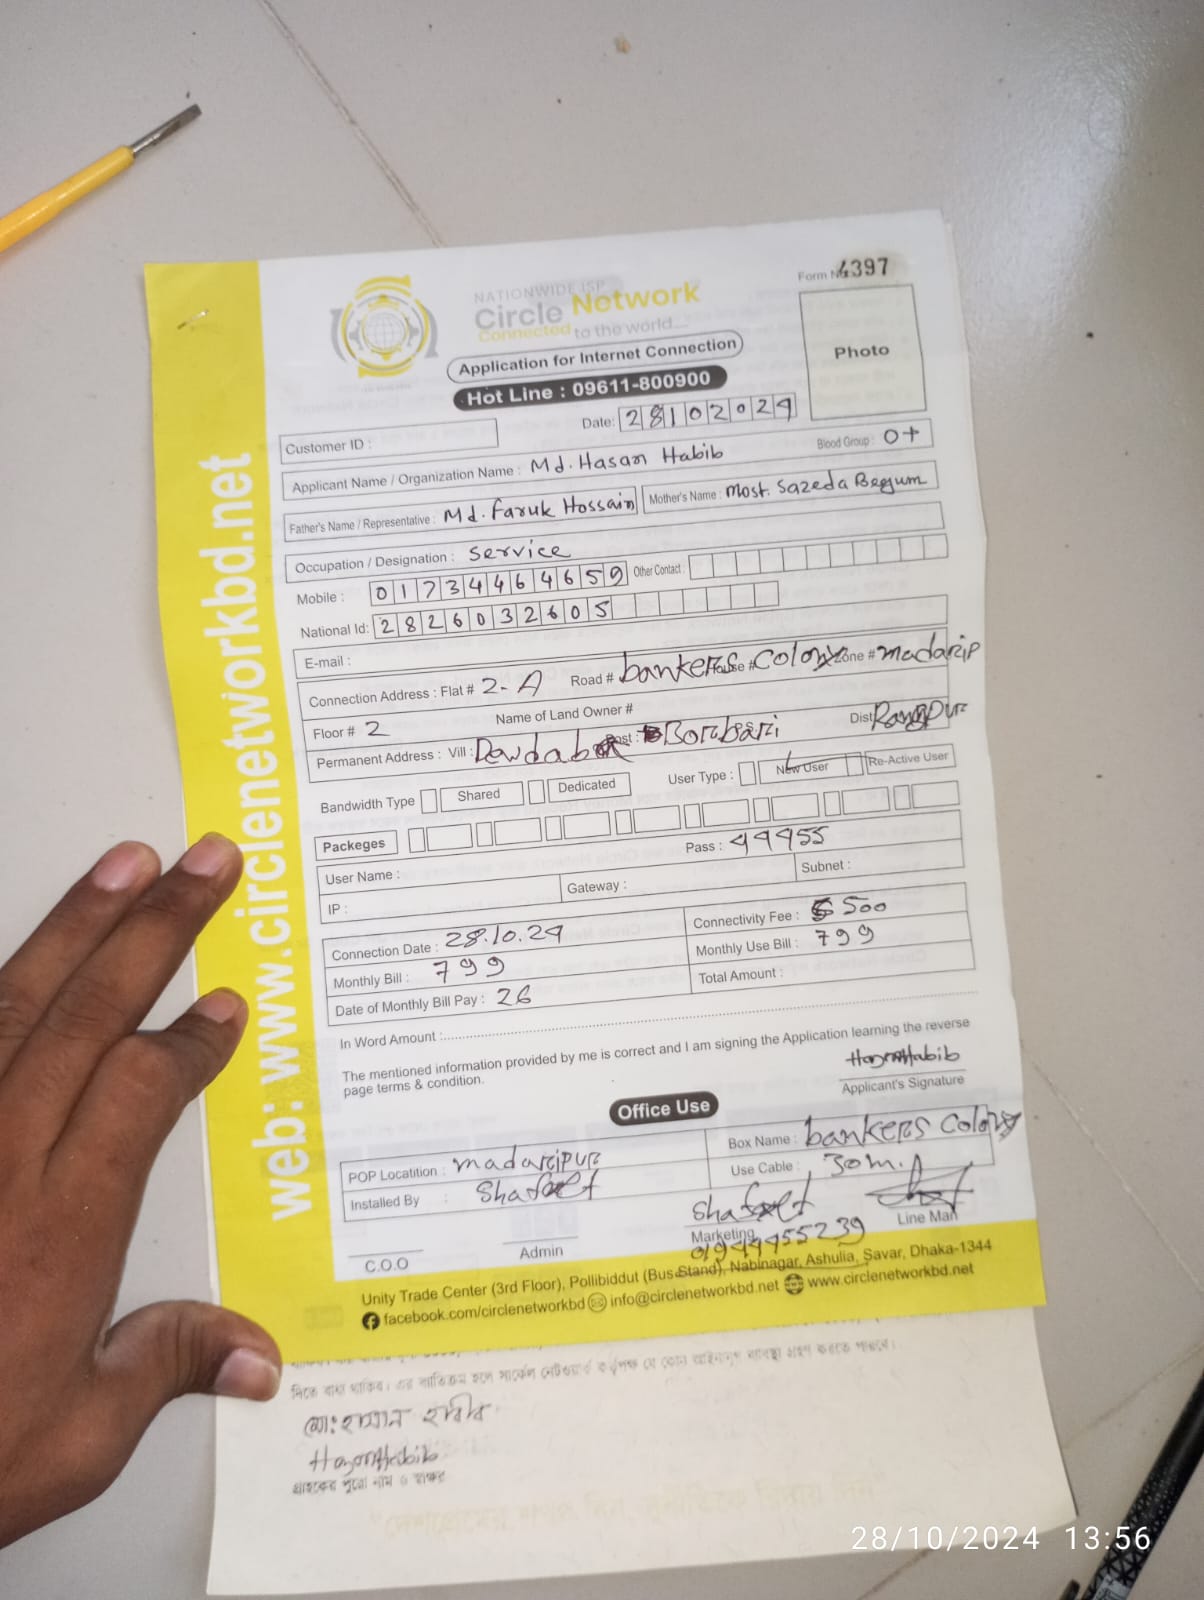 web: www.circlenetworkbd.net
Form No 4397
NATIONWIDE ISP
Circle Network
Connected to the world...
Photo
Application for Internet Connection
Hot Line : 09611-800900
Date: 28102024
Customer ID :
Applicant Name / Organization Name : Md. Hasan Habib Blood Group : O+
Father's Name / Representative : Md. Faruk Hossain Mother's Name : Most. Sazeda Begum
Occupation / Designation : Service
Mobile : 01734464659 Other Contact :
National Id: 2826032605
E-mail :
Connection Address : Flat # 2-A Road # bankers House # Colony Zone # madarip
Floor # 2 Name of Land Owner #
Permanent Address : Vill : Post : Borobari Dist Rangpur
Bandwidth Type Shared Dedicated User Type : New User Re-Active User
Packeges
User Name : Pass : 44455
IP : Gateway : Subnet :
Connection Date : 28.10.24 Connectivity Fee : 500
Monthly Bill : 799 Monthly Use Bill : 799
Date of Monthly Bill Pay : 26 Total Amount :
In Word Amount :
The mentioned information provided by me is correct and I am signing the Application learning the reverse
page terms & condition.
Habib
Applicant's Signature
Office Use
POP Locatition : madaripur Box Name : bankers Colony
Installed By : Use Cable : 30m.
C.O.O Admin Marketing Line Man
01944455239
Unity Trade Center (3rd Floor), Pollibiddut (Bus Stand), Nabinagar, Ashulia, Savar, Dhaka-1344
facebook.com/circlenetworkbd info@circlenetworkbd.net www.circlenetworkbd.net
দিতে বাধ্য থাকিব। এর ব্যতিক্রম হলে সার্কেল নেটওয়ার্ক কর্তৃপক্ষ যে কোন আইনানুগ ব্যবস্থা গ্রহণ করতে পারবে।
মোঃ হাসান হাবীব
Habib
গ্রাহকের পুরো নাম ও স্বাক্ষর
28/10/2024 13:56